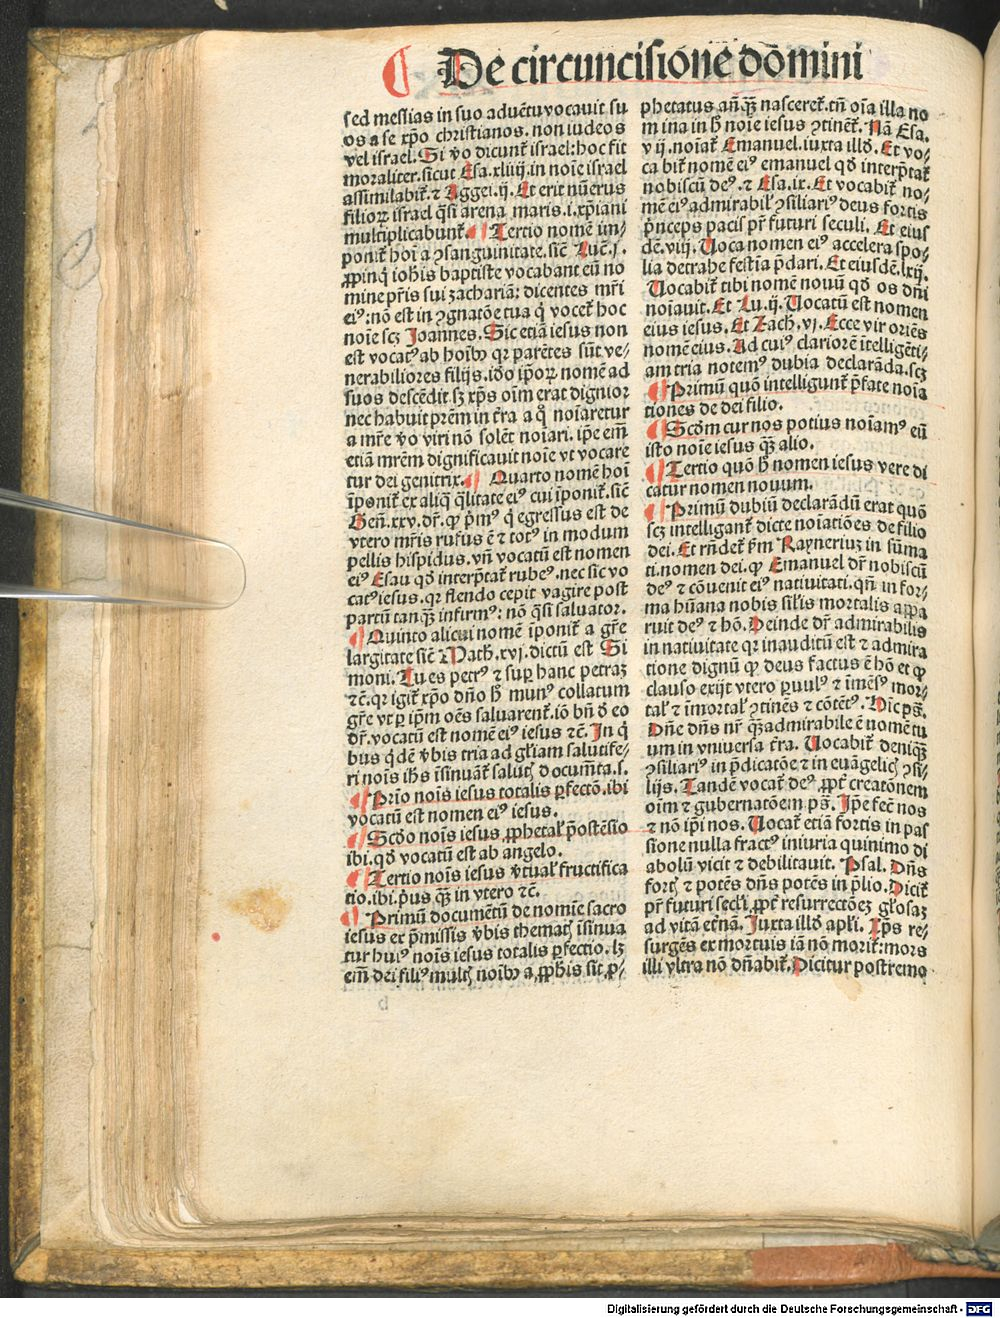 ¶ De circuncisione domini
sed messias in suo aduētu vocauit su
os a se xp̄o christianos. non iudeos
vel israel. Si v̄o dicunt̄ israel: hoc fit
moraliter. sicut Esa. xliiij. in noīe israel
assimilabit̄. ⁊ Aggei. ij. Et erit nūerus
filioꝝ israel q̄si arena maris. i. xp̄iani
multiplicabunt̄. ¶ Tertio nomē im⸗
ponit̄ hoī a ꝯsanguinitate. sic̄ Luc̄. j.
ꝓpinq̄ ioh̄is baptiste vocabant eū no
mine pr̄is sui zachariā: dicentes mr̄i
eiꝰ: nō est in ꝯgnatōe tua q̇ vocet̄ hoc
noīe scꝫ Joannes. Sic etiā iesus non
est vocatꝰ ab hoībꝰ qꝛ parētes sūt ve⸗
nerabiliores filijs. iđo ip̄oꝝ nomē ad
suos descēdit. sꝫ xp̄s oīm erat dignior
nec habuit prēm in t̄ra a q̇ noīaretur
a mr̄e v̄o viri nō solēt noīari. ip̄e em̄
etiā mrēm dignificauit noīe vt vocare
tur dei genitrix. ¶ Quarto nomē hoī
īponit̄ ex aliq̄ q̄litate eiꝰ cui īponit̄. sic̄
Gen̄. xxv. dr̄. ꝙ p̄mꝰ q̇ egressus est de
vtero mr̄is rufus ē ⁊ totꝰ in modum
pellis hispidus. vn̄ vocatū est nomen
eiꝰ Esau qđ interp̄tat̄ rubeꝰ. nec sic vo
catꝰ iesus. qꝛ flendo cepit vagire post
partū tanqꝫ infirmꝰ: nō q̄si saluator.
¶ Quinto alicui nomē īponit̄ a gr̄e
largitate sic̄ Math̄. xvj. dictū est Si
moni. Tu es petrꝰ ⁊ suꝑ hanc petraꝫ
⁊c̄. qꝛ igit̄ xp̄o dn̄o h̄ munꝰ collatum
gr̄e vt ꝑ ip̄m oēs saluarent̄. iō bn̄ đ eo
dr̄. vocatū est nomē eiꝰ iesus ⁊c̄. In q̇
bus q̇dē v̄bis tria ad gl̄iam salutife⸗
ri noīs ih̄s īsinuāt̄ salutꝭ documēta. s.
¶ Prīo noīs iesus totalis ꝑfectō. ibi
vocatū est nomen eiꝰ iesus.
¶ Scđo noīs iesus ꝓphetal̓ p̄ostēsio
ibi. qđ vocatū est ab angelo.
¶ Tertio noīs iesus v̄tual̓ fructifica
tio. ibi. p̄us qꝫ in vtero ⁊c̄.
¶ Primū documētū de nomīe sacro
iesus ex p̄missis v̄bis thematꝭ īsinua
tur huiꝰ noīs iesus totalis ꝑfectio. lꝫ
em̄ dei filiꝰ multꝭ noībꝰ a ꝓph̄is sit ꝓ⸗
phetatus an̄qꝫ nasceret̄. tn̄ oīa illa no
mina in h̄ noīe iesus ꝯtinēt̄. Nā Esa.
vij. noīat̄ Emanuel. iuxta illđ. Et vo⸗
cabit̄ nomē eiꝰ emanuel qđ interp̄tat̄
nobiscū deꝰ. ⁊ Esa. ix. Et vocabit̄ no⸗
mē eiꝰ admirabil̓ ꝯsiliariꝰ deus fortis
p̄nceps pacis pr̄ futuri seculi. Et eius
dē. viij. Uoca nomen eiꝰ accelera spo⸗
lia detrahe festīa p̄dari. Et eiusdē. lxij.
Uocabit̄ tibi nomē nouū qđ os dn̄i
noīauit. Et Lu. ij. Uocatū est nomen
eius iesus. Et Zach̄. vj. Ecce vir oriēs
nomē eius. Ad cuiꝰ clariorē ītelligēti⸗
am tria notemꝰ dubia declarāda. scꝫ
¶ Primū quō intelligunt̄ p̄fate noīa
tiones de dei filio.
¶ Scđm cur nos potius noīamꝰ eū
isto noīe iesus qꝫ alio.
¶ Tertio quō h̄ nomen iesus vere di
catur nomen nouum.
¶ Primū dubiū declarādū erat quō
scꝫ intelligant̄ dicte noīatiōes de filio
dei. Et rn̄det̄ p̄m Rayneriuꝫ in sūma
ti. nomen dei. ꝙ Emanuel dr̄ nobiscū
deꝰ ⁊ cōuenit eiꝰ natiuitati. qn̄ in for⸗
ma hūana nobis sil̄is mortalis appa
ruit deꝰ ⁊ hō. Deinde dr̄ admirabilis
in natiuitate qꝛ inauditū est ⁊ admira
tione dignū ꝙ deus factus ē hō et ꝙ
clauso exijt vtero ꝑuulꝰ ⁊ īmēsꝰ mor⸗
tal̓ ⁊ īmortal̓ ꝯtinēs ⁊ cōtētꝰ. Hic ps̄.
Dn̄e dn̄s nr̄ qꝫ admirabile ē nomē tu
um in vniuersa t̄ra. Uocabit̄ deniqꝫ
ꝯsiliariꝰ in p̄dicatōe ⁊ in euāgelicꝭ ꝯsi⸗
lijs. Tandē vocat̄ deꝰ ꝓpt̄ creatōnem
oīm ⁊ gubernatōem ps̄. Ip̄e fec̄ nos
⁊ nō ip̄i nos. Uocat̄ etiā fortis in pas
sione nulla fractꝰ iniuria quinimo di
abolū vicit ⁊ debilitauit. Psal. Dn̄s
fortꝭ ⁊ potēs dn̄s potēs in p̄lio. Dicit̄
pr̄ futuri secl̄i ꝓpt̄ resurrectōeꝫ gl̓osaꝫ
ad vitā et̄nā. Juxta illđ apl̄i. Xp̄s re⸗
surgēs ex mortuis iā nō morit̄: mors
illi vltra nō dn̄abit̄. Dicitur postremo
Digitalisierung gefördert durch die Deutsche Forschungsgemeinschaft - DFG